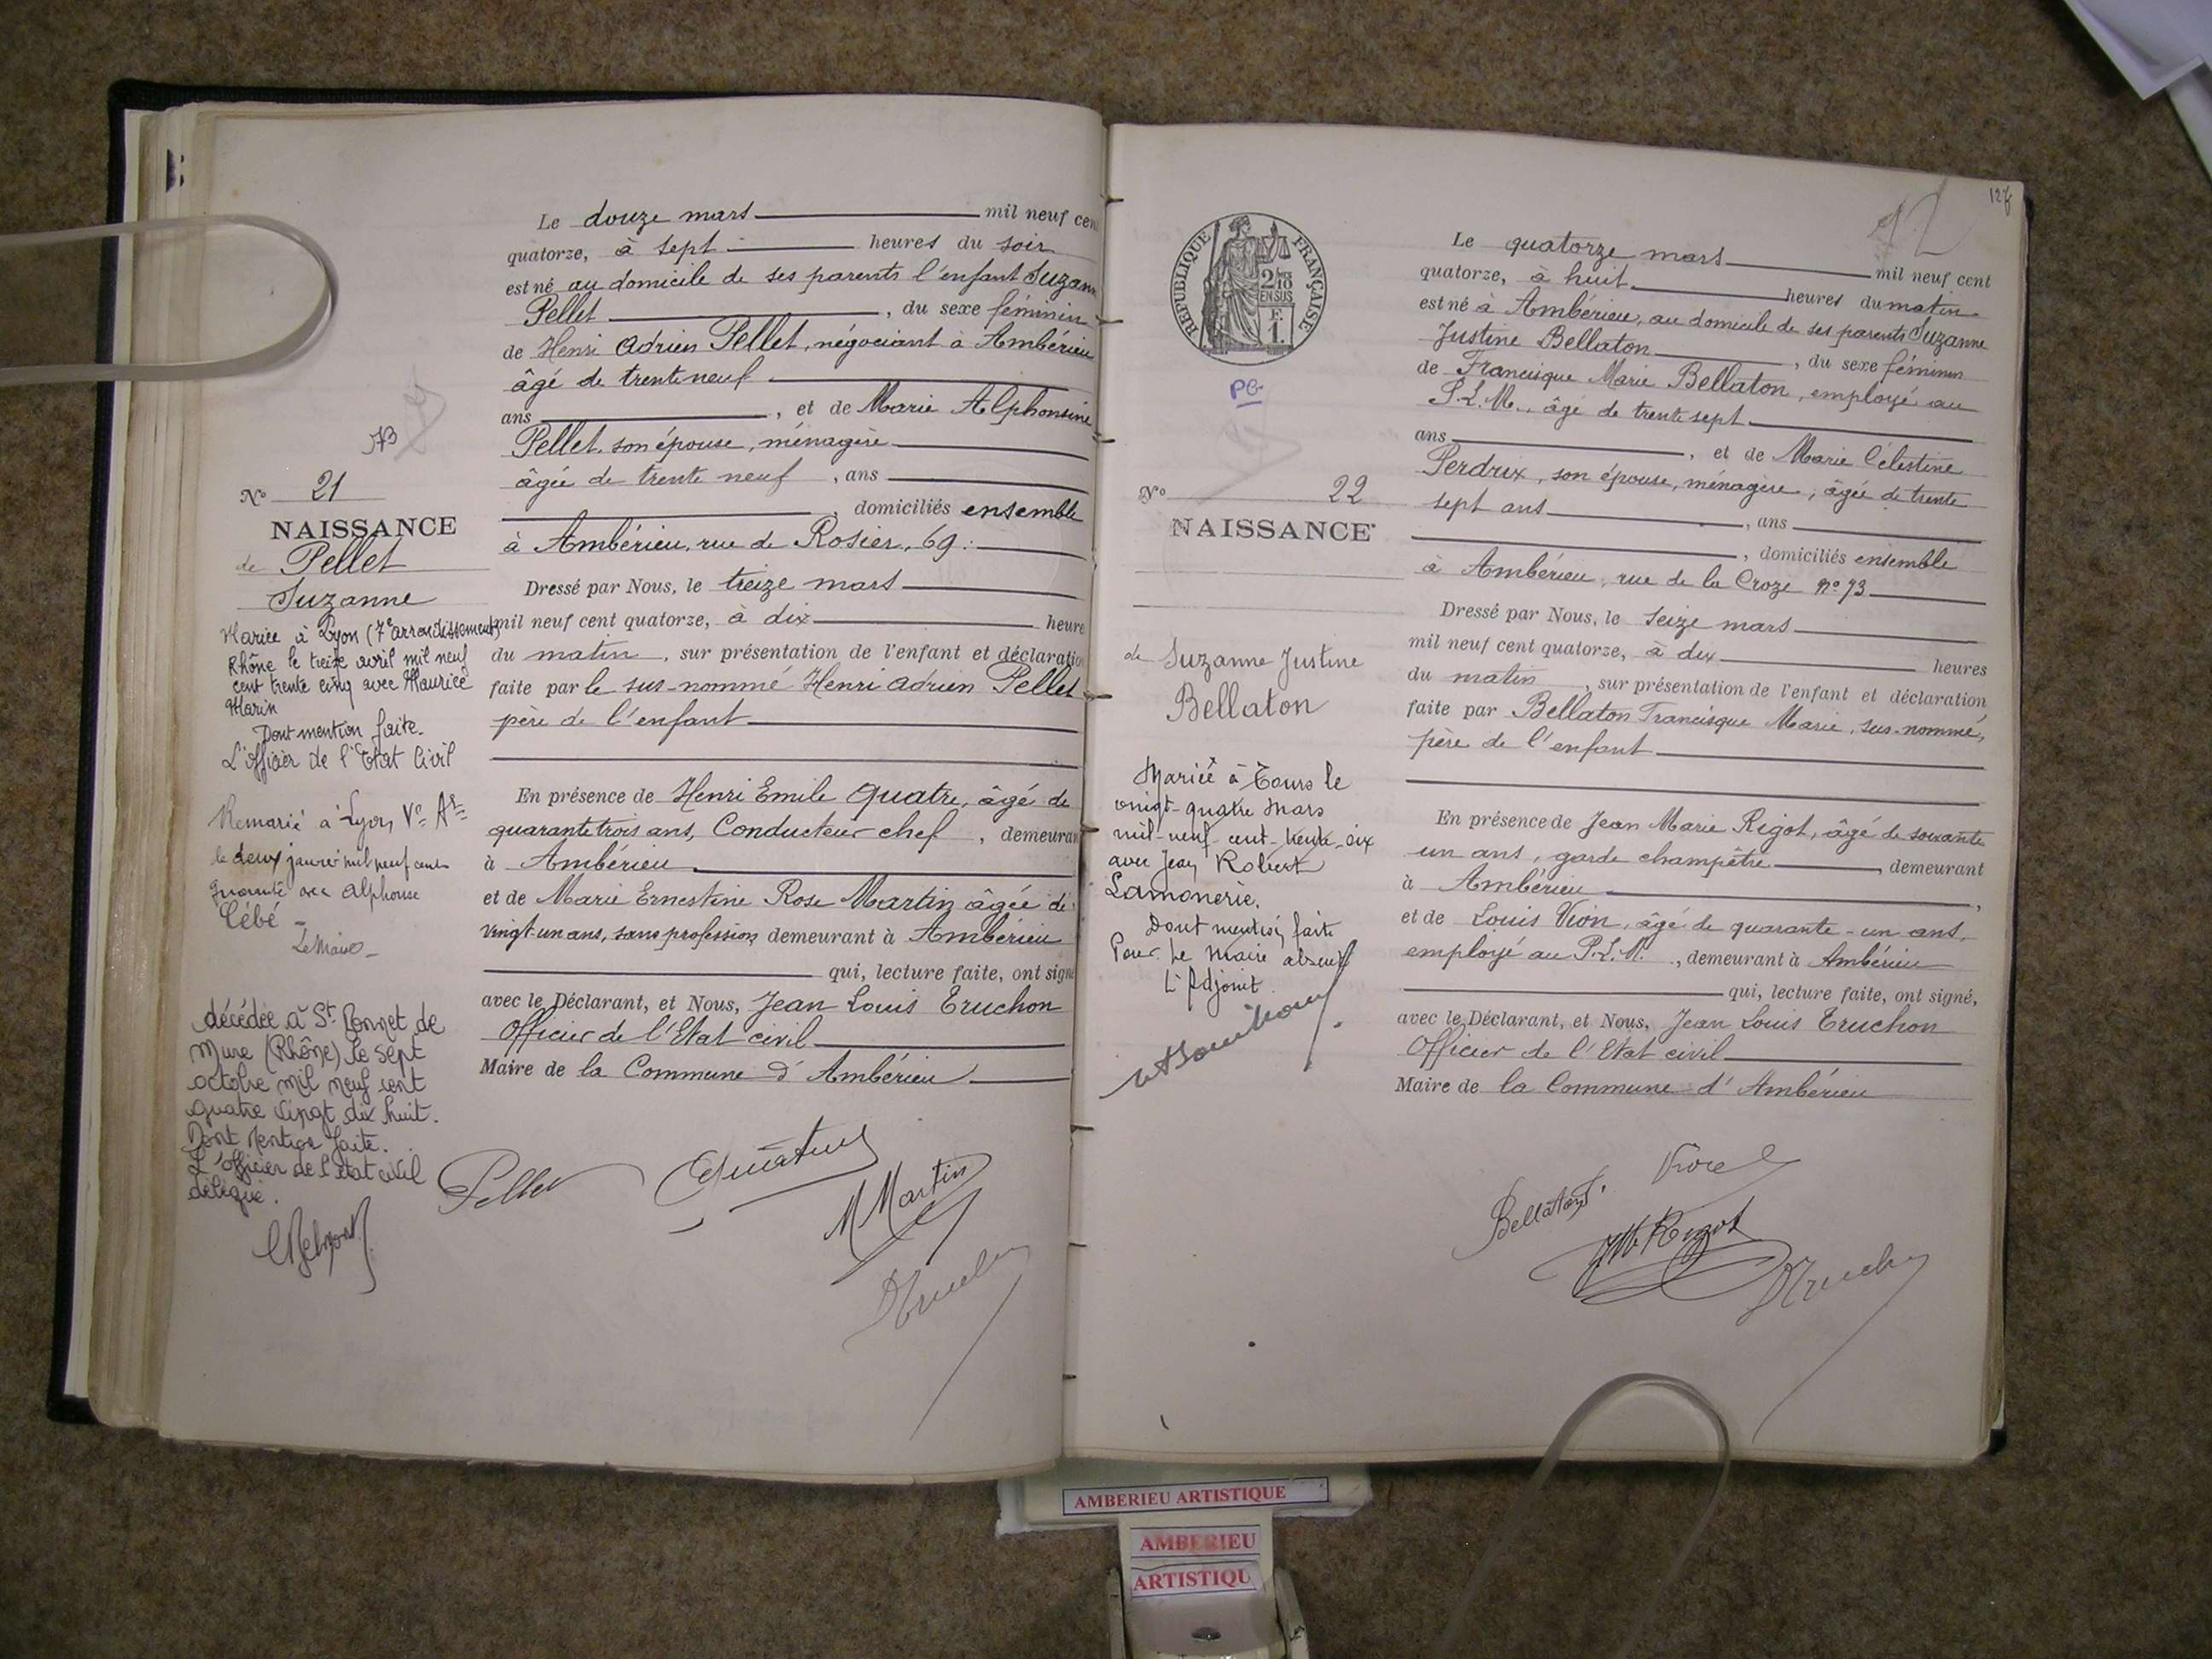 Le douze mars mil neuf cen
quatorze, à sept heures du soir
est né au domicile de ses parents l'enfant Suzann
Pellet, du sexe féminin
de Henri Adrien Pellet, négociant à Ambérieu
âgé de trente neuf
ans, et de Marie Alphonsine
Pellet, son épouse, ménagère
âgée de trente neuf, ans
, domiciliés ensemble
à Ambérieu, rue de Rosier, 69.
Dressé par Nous, le treize mars
mil neuf cent quatorze, à dix heure
du matin, sur présentation de l'enfant et déclaratio
faite par le sus-nommé Henri Adrien Pellet
père de l'enfant
En présence de Henri Emile Quatre, âgé de
quarante trois ans, Conducteur chef, demeuran
à Ambérieu
et de Marie Ernestine Rose Martin âgée de
vingt-un ans, sans profession demeurant à Ambérieu
qui, lecture faite, ont signé
avec le Déclarant, et Nous, Jean Louis Truchon
Officier de l'Etat civil
Maire de la Commune d'Ambérieu
Pellet
M Martin
73
N° 21
NAISSANCE
de Pellet
Suzanne
Mariée à Lyon (7e arrondissement)
Rhône le treize avril mil neuf
cent trente cinq avec Maurice
Marin
Dont mention faite.
L'officier de l'Etat Civil
Remarié à Lyon Ve Art
le deux janvier mil neuf cent
quarante avec Alphonse
Cébé
Le Maire
décédée à St Bonnet de
Mure (Rhône) le sept
octobre mil neuf cent
quatre vingt dix huit.
Dont Mention faite.
L'officier de l'état civil
délégué.
127
RÉPUBLIQUE FRANÇAISE
2/10
EN SUS
F.
1.
PB
N° 22
NAISSANCE
de Suzanne Justine
Bellaton
Mariée à Tours le
vingt-quatre mars
mil-neuf-cent-trente-six
avec Jean Robert
Lamonerie.
Dont mention faite
Pour Le Maire absent
L'Adjoint
Le quatorze mars mil neuf cent
quatorze, à huit heures du matin
est né à Ambérieu, au domicile de ses parents Suzanne
Justine Bellaton, du sexe féminin
de Francisque Marie Bellaton, employé au
P.L.M., âgé de trente sept
ans, et de Marie Célestine
Perdrix, son épouse, ménagère, âgée de trente
sept ans, ans
, domiciliés ensemble
à Ambérieu, rue de la Croze n° 73
Dressé par Nous, le seize mars
mil neuf cent quatorze, à dix heures
du matin, sur présentation de l'enfant et déclaration
faite par Bellaton Francisque Marie, sus-nommé,
père de l'enfant
En présence de Jean Marie Rigot, âgé de soixante
un ans, garde champêtre demeurant
à Ambérieu,
et de Louis Vion, âgé de quarante-un ans,
employé au P.L.M., demeurant à Ambérieu
qui, lecture faite, ont signé,
avec le Déclarant, et Nous, Jean Louis Truchon
Officier de l'Etat civil
Maire de la Commune d'Ambérieu
Bellaton
JM Rigot
AMBERIEU ARTISTIQUE
AMBERIEU
ARTISTIQU